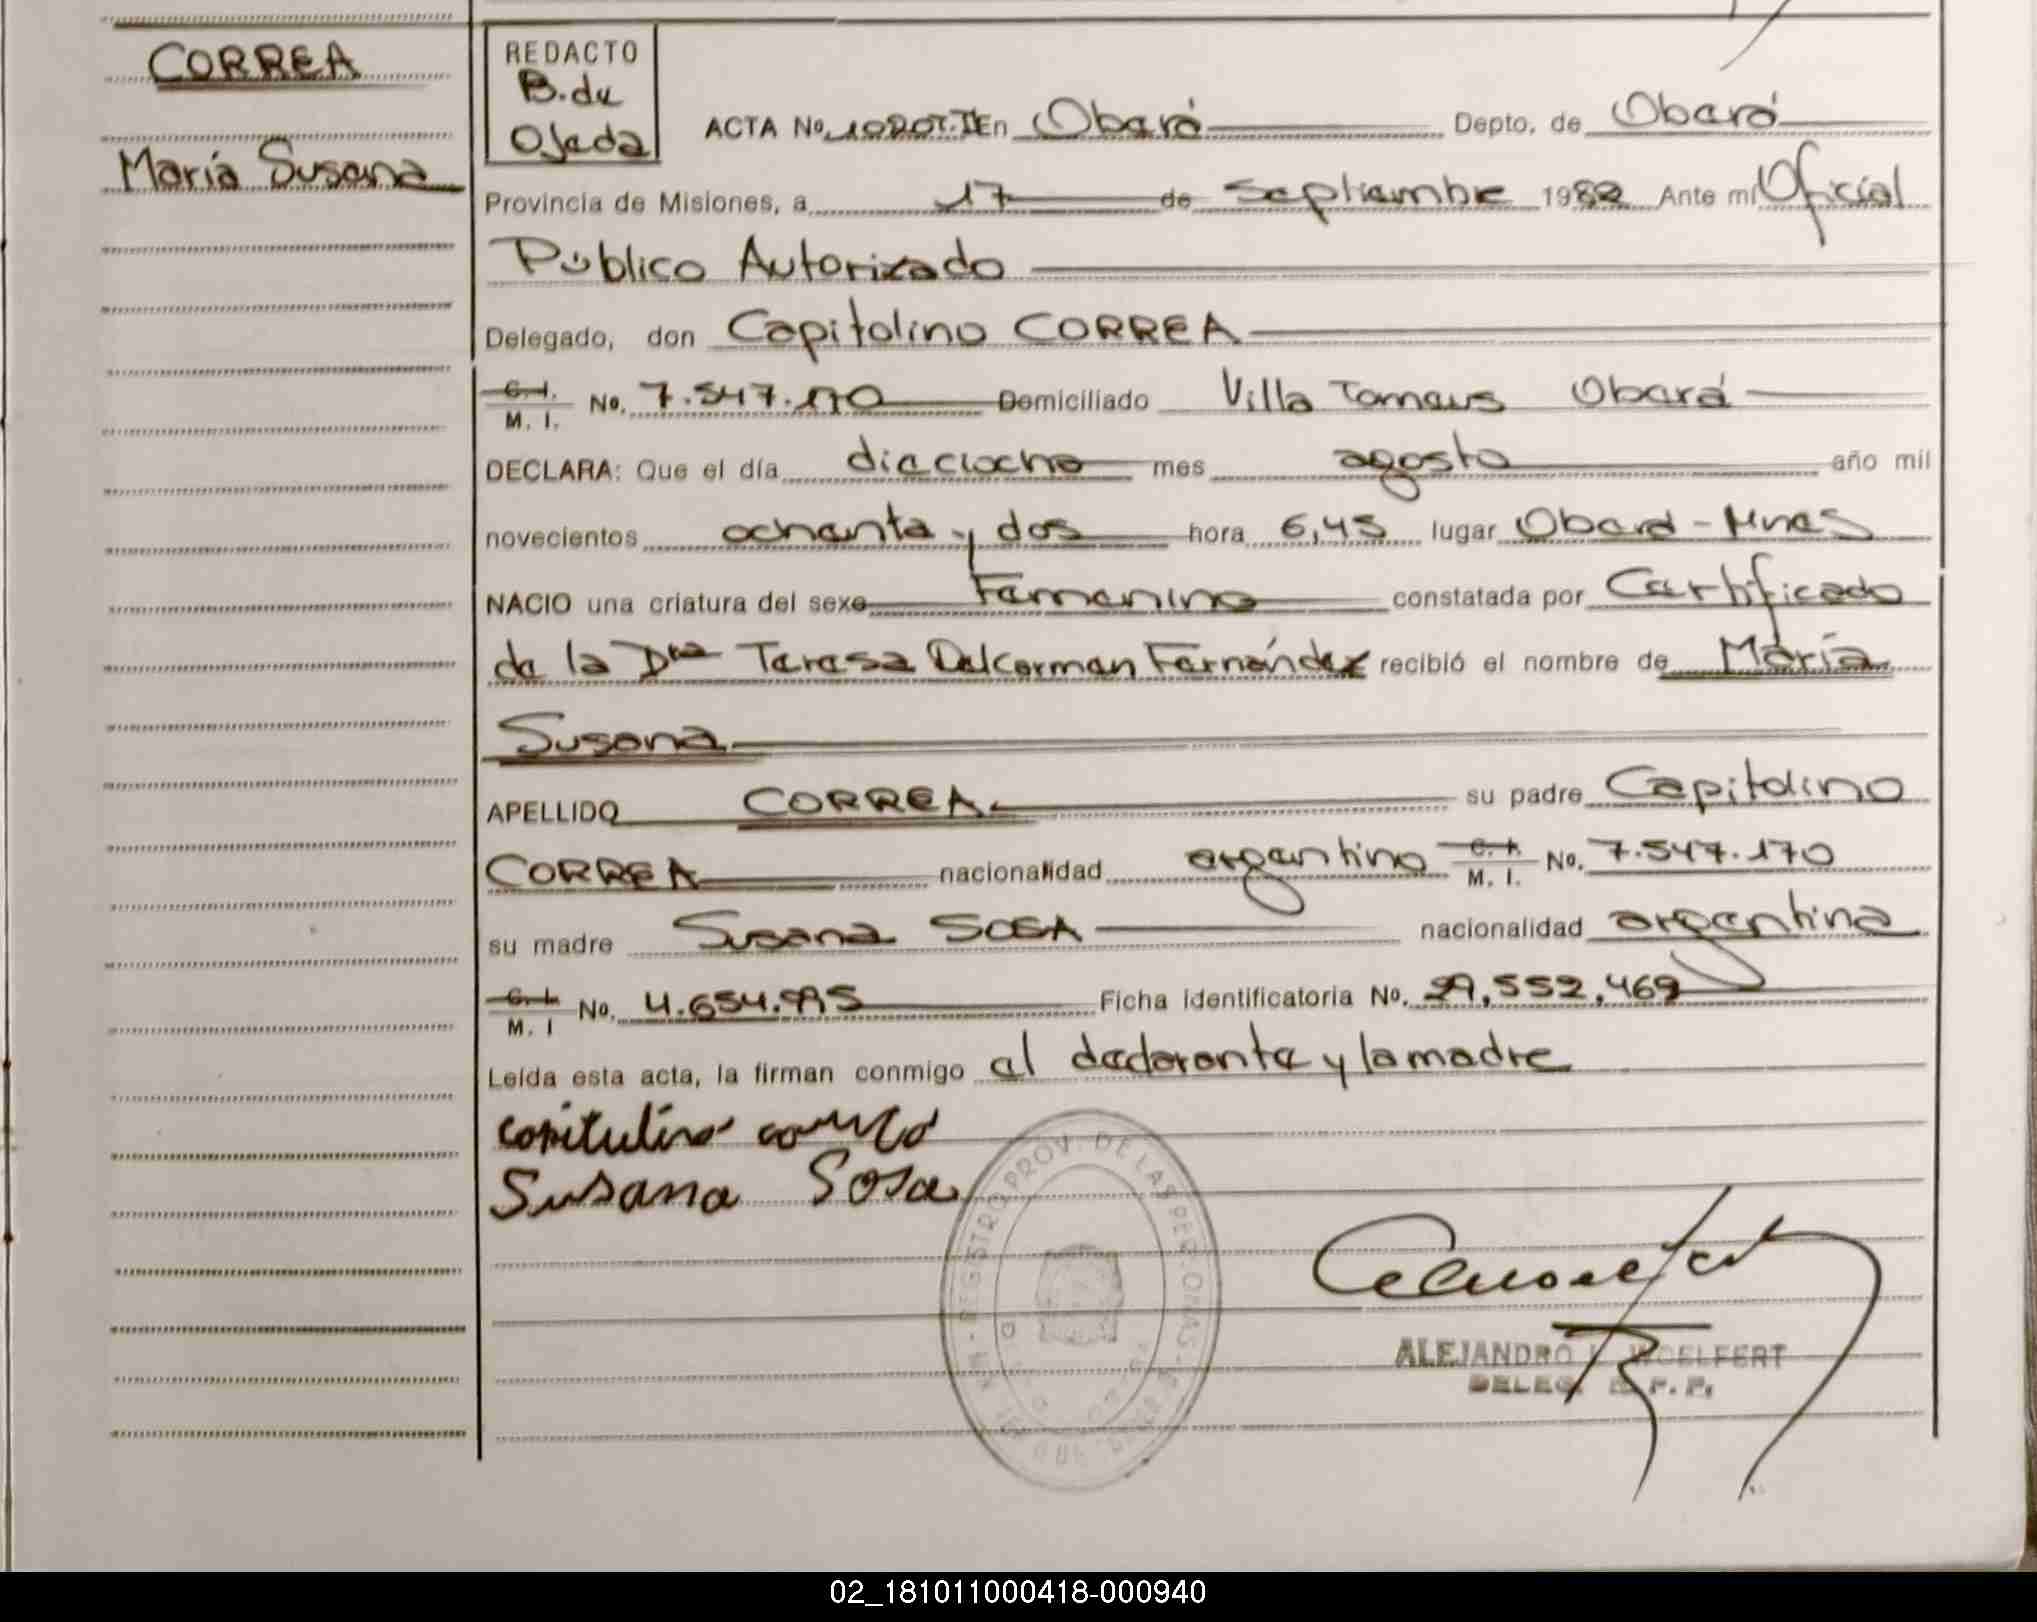 CORREA
María Susana
REDACTO
B. de
Ojeda
ACTA No. En Oberá Depto. de Oberá
Provincia de Misiones, a 17 de Septiembre 1982 Ante mí Oficial
Público Autorizado
Delegado, don Capitolino CORREA
C. I. M. I. No. 7.547.170 Domiciliado Villa Oberá
DECLARA: Que el día dieciocho mes agosto año mil
novecientos ochenta y dos hora 6,45 lugar Oberá - Mnes
NACIO una criatura del sexo Femenino constatada por Certificado
de la Dra Teresa Fernández recibió el nombre de María
Susana
APELLIDO CORREA su padre Capitolino
CORREA nacionalidad argentino C. I. M. I. No. 7.547.170
su madre Susana SOSA nacionalidad argentina
C. I. M. I No. Ficha identificatoria No. 29,552,469
Leída esta acta, la firman conmigo el declarante y la madre
Susana Sosa
REGISTRO PROV. DE LAS PERSONAS
ALEJANDRO WOELFERT
DELEG. R. P. P.
02_181011000418-000940